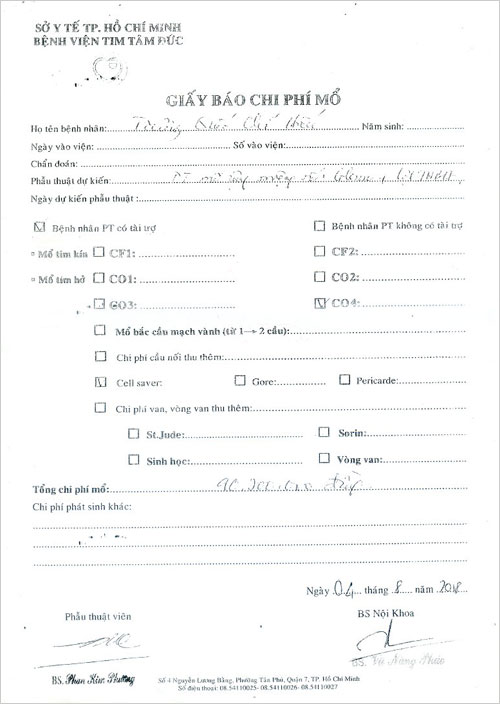 SỞ Y TẾ TP. HỒ CHÍ MINH
BỆNH VIỆN TIM TÂM ĐỨC
GIẤY BÁO CHI PHÍ MỔ
Họ tên bệnh nhân: Trương Năm sinh:
Ngày vào viện: Số vào viện:
Chẩn đoán:
Phẫu thuật dự kiến: PT Glenn,
Ngày dự kiến phẫu thuật :
Bệnh nhân PT có tài trợ Bệnh nhân PT không có tài trợ
Mổ tim kín CF1: CF2:
Mổ tim hở CO1: CO2:
CO3: CO4:
Mổ bắc cầu mạch vành (từ 1→ 2 cầu):
Chi phí cầu nối thu thêm:
Cell saver: Gore: Pericarde:
Chi phí van, vòng van thu thêm:
St.Jude: Sorin:
Sinh học: Vòng van:
Tổng chi phí mổ: đồng
Chi phí phát sinh khác:
Ngày 04 tháng 8 năm 2018
Phẫu thuật viên BS Nội Khoa
BS. Phan Kim Phương BS. Vũ Năng Phúc
Số 4 Nguyễn Lương Bằng, Phường Tân Phú, Quận 7, TP. Hồ Chí Minh
Số điện thoại: 08.54110025- 08.54110026- 08.54110027